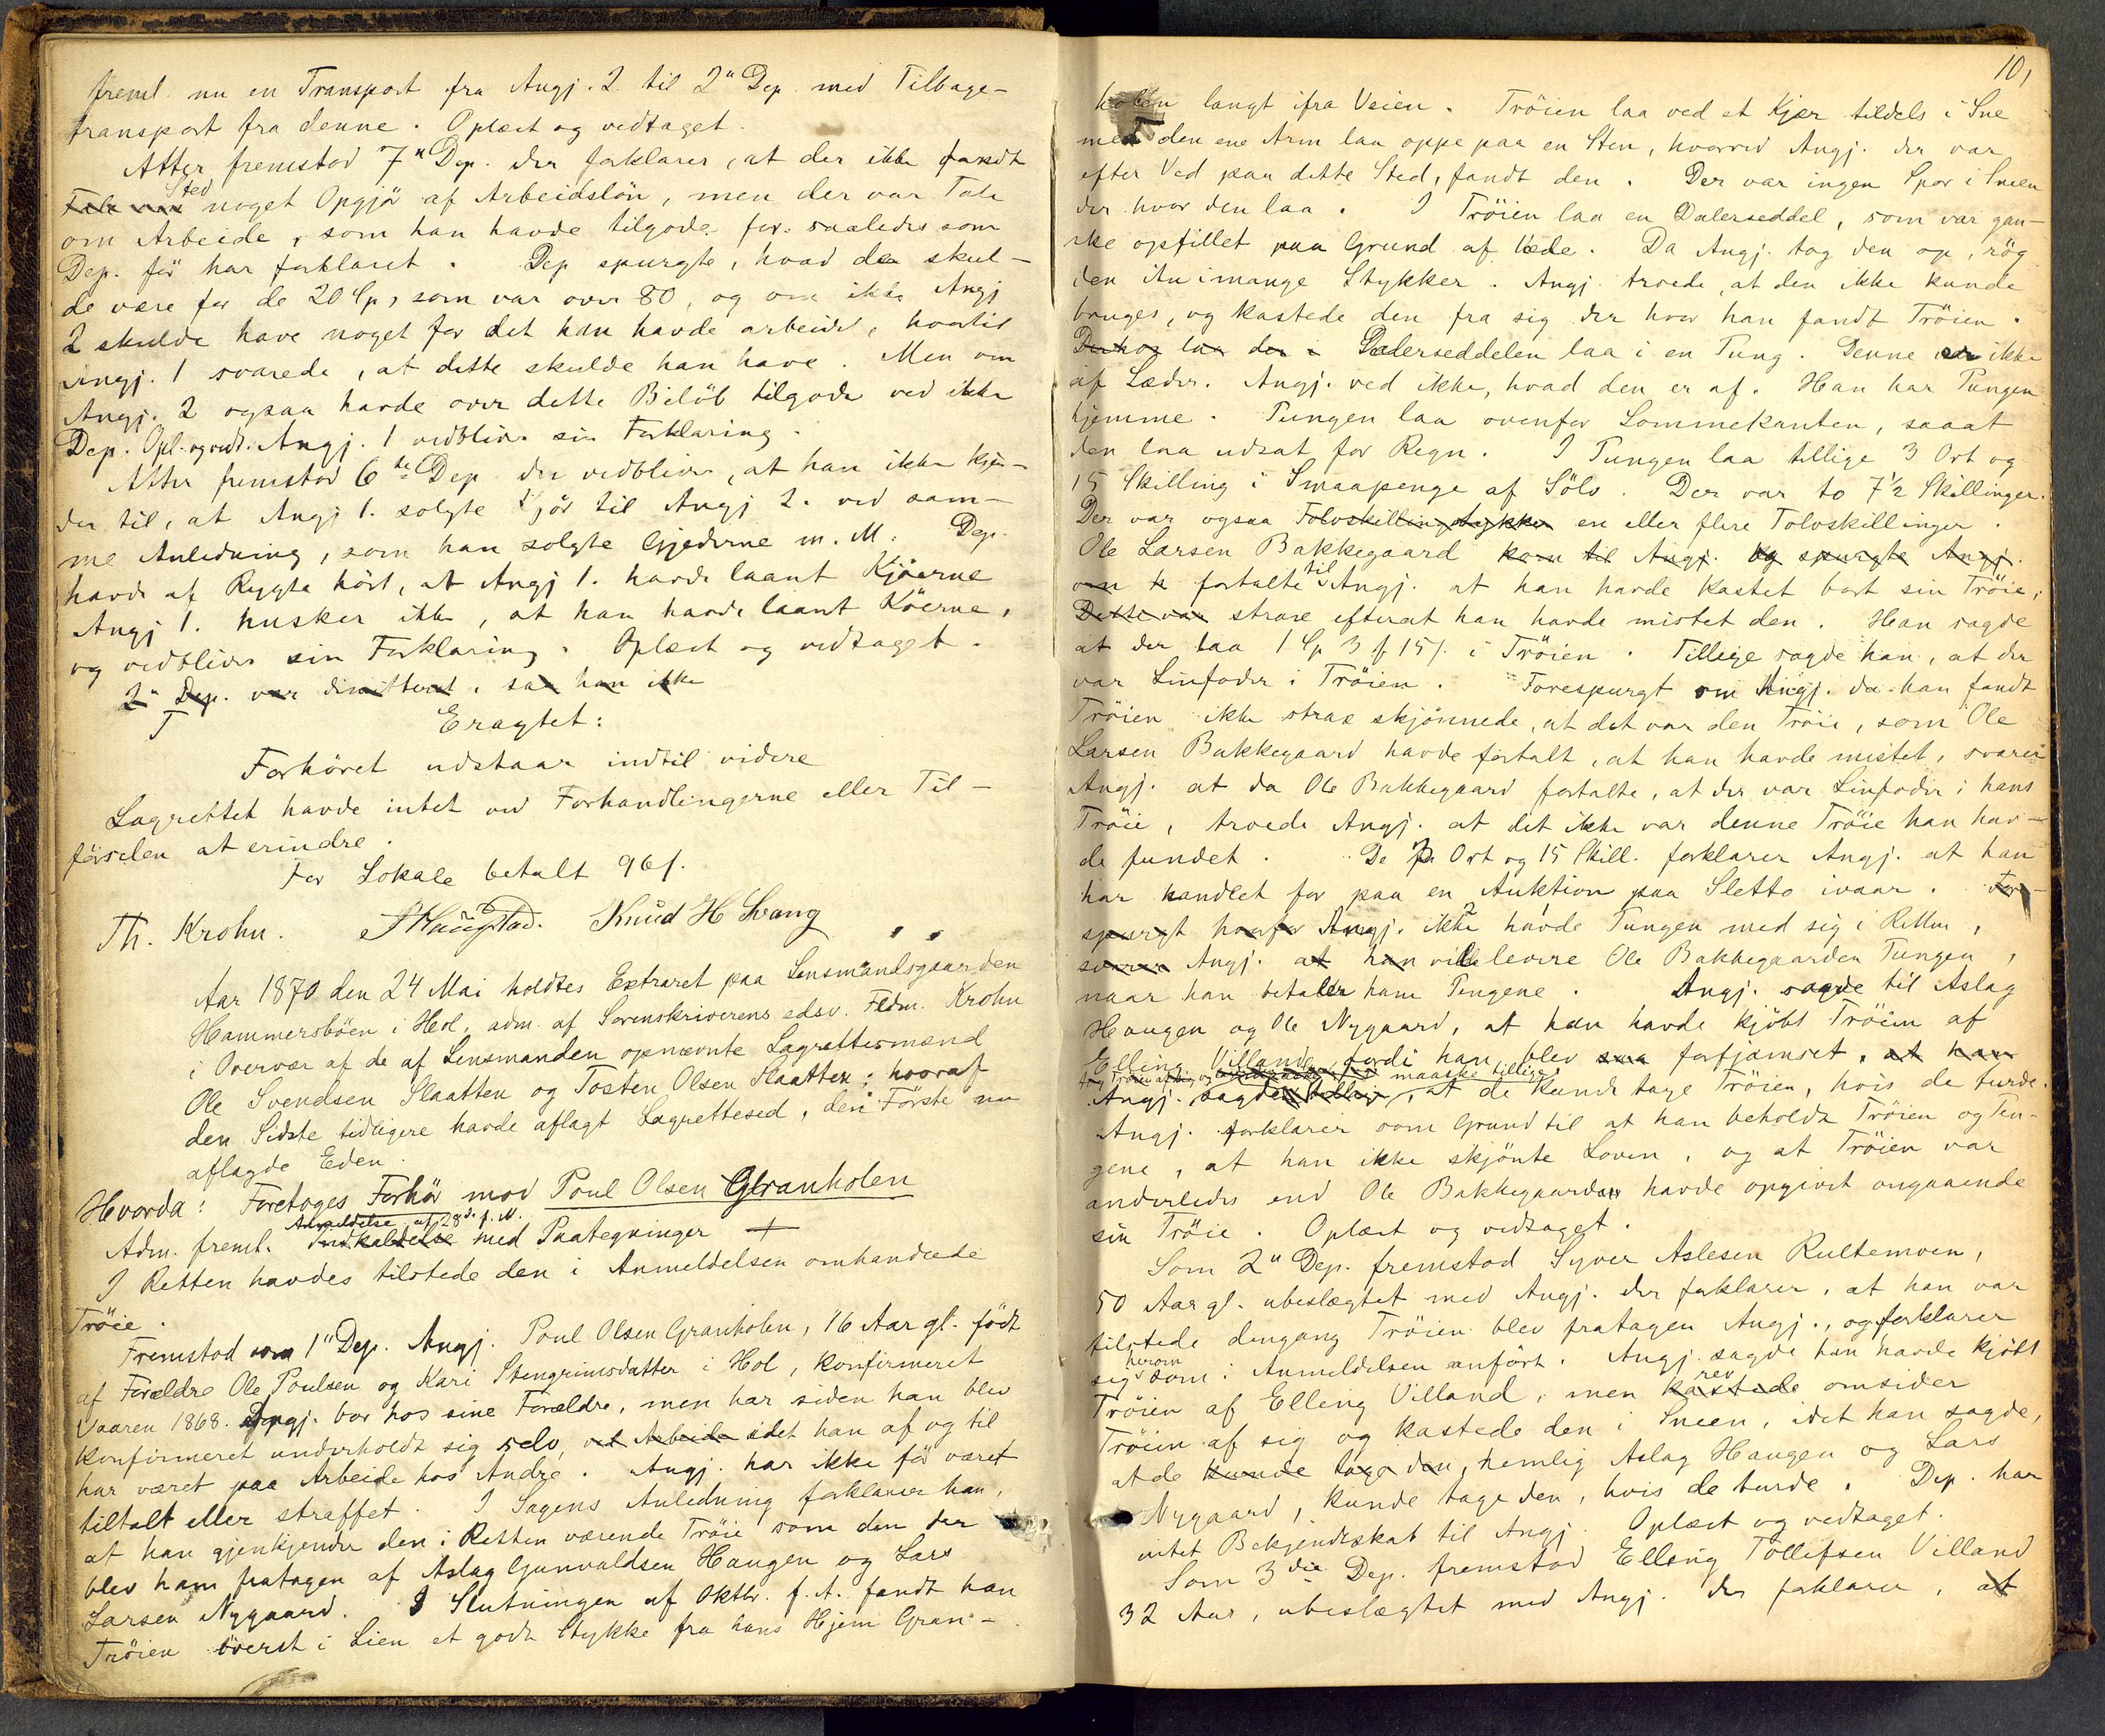 freml. nu en Transport fra Angj. 2. til 2" Dep. med Tilbage-
transport fra denne. Oplæst og vedtaget.
Atter fremstod 7" Dep. der forklarer, at der ikke fandt
Sted
noget Opgjör af Arbeidslön, men der var Tale
om Arbeide, som han havde tilgode for. saaledes som
Dep. för har forklaret. Dep spurgte, hvad der skul-
de være for de 20 Sp, som var over 80, og om ikke Angj
2 skulde have noget for det han havde arbeidet, hvortil
Angj. 1 svarede, at dette skulde han have. Men om
Angj. 2 ogsaa havde over dette Belöb tilgode ved ikke
Dep. Opl. og vedt. Angj. 1 vedbliver sin Forklaring.
Atter fremstod 6te Dep der vedbliver, at han ikke kjen-
der til, at Angj 1. solgte Kjör til Angj 2. ved sam-
me Anledning, som han solgte Gjederne m. M. Dep.
havde af Rygte hört, at Angj 1. havde laant Kjöerne
Angj 1. husker ikke, at han havde laant Köerne,
og vedbliver sin Forklaring. Oplæst og vedtaget.
2" Dep. var dimitteret, saa han ikke
Eragtet:
Forhöret udstaar indtil videre
Lagrettet havde intet ved Forhandlingerne eller Til-
förselen at erindre.
For Lokale betalt 96 s.
Th. Krohn. Knud H Svang
Aar 1870 den 24 Mai holdtes Extraret paa Lensmandsgaarden
Hammersböen i Hol, adm. af Sorenskriverens edsv. Fuldm. Krohn
i Overvær af de af Lensmanden opnævnte Lagrettesmænd
Ole Svendsen Slaatten og Tosten Olsen Slaatten; hvoraf
den Sidste tidligere havde aflagt Lagretteseed, den Förste nu
aflagde Eden.
Hvorda: Foretoges Forhör mod Poul Olsen Granholen
Anmeldelse af 28de f. M.
Adm. freml. Indkaldelse med Paategninger +
I Retten havdes tilstede den i Anmeldelsen omhandlede
Tröie.
Fremstod som 1" Dep. Angj. Poul Olsen Granholen, 16 Aar gl. födt
af Forældre Ole Poulsen og Kari Stengrimsdatter i Hol, konfirmeret
Vaaren 1868. Angj. bor hos sine Forældre, men har siden han blev
konfirmeret underholdt sig selv, ved Arbeide idet han af og til
har været paa Arbeide hos Andre. Angj. har ikke för været
tiltalt eller straffet. I Sagens Anledning forklarer han,
at han gjenkjender den i Retten værende Tröie som den der
blev ham fratagen af Aslag Gunvaldsen Haugen og Lars
Larsen Nygaard. I Slutningen af Oktbr. f. A. fandt han
Tröien överst i Lien et godt Stykke fra hans Hjem Gran-
101
holen langt ifra Veien. Tröien laa ved et Kjær tildels i Sne
med den ene Arm laa oppe paa en Sten, hvorved Angj. der var
efter Ved paa dette Sted, fandt den. Der var ingen Spor i Sneen
der hvor den laa. I Tröien laa en Dalerseddel, som var gan-
ske opfillet paa Grund af Væde. Da Angj. tog den op, rög
den itu i mange Stykker. Angj. troede, at den ikke kunde
bruges, og kastede den fra sig der hvor han fandt Tröien.
Derhos laa der i Dalerseddelen laa i en Pung. Denne er ikke
af Læder. Angj. ved ikke, hvad den er af. Han har Pungen
hjemme. Pungen laa ovenfor Lommekanten, saaat
den laa udsat for Regn. I Pungen laa tillige 3 Ort og
15 Skilling i Smaapenge af Sölv. Der var to 7½ Skillinger.
Der var ogsaa Tolvskillingstykker en eller flere Tolvskillinger.
Ole Larsen Bakkegaard kom til Angj. og spurgte Angj.
om fortalte til Angj. at han havde kastet bort sin Tröie,
Dette var strax efterat han havde mistet den. Han sagde
at der laa 1 Sp 3 f 15 s. i Tröien. Tillige sagde han, at der
var Linfoder i Tröien. Forespurgt om Angj. da han fandt
Tröien ikke strax skjönnede, at det var den Tröie, som Ole
Larsen Bakkegaard havde fortalt, at han havde mistet, svarer
Angj. at da Ole Bakkegaard fortalte, at der var Linfoder i hans
Tröie, troede Angj. at det ikke var denne Tröie han hav-
de fundet. De 3 Ort og 15 Skill. forklarer Angj. at han
har handlet for paa en Auktion paa Sletto ivaar. For-
spurgt hvorfor Angj. ikke havde Pungen med sig i Retten,
svarer Angj. at han vil levere Ole Bakkegaarden Pungen,
naar han betaler ham Pengene. Angj. sagde til Aslag
Haugen og Ole Nygaard, at han havde kjöbt Tröien af
Elling Villande, fordi han blev saa forfjamset, at han
tog Tröien af sig og maaske tillige
Angj. sagde tillige, at de kunde tage Tröien, hvis de turde.
Angj. forklarer som Grund til at han beholdt Tröien og Pen-
gene, at han ikke skjönte Loven, og at Tröien var
anderledes end Ole Bakkegaarden havde opgivet angaaende
sin Tröie. Oplæst og vedtaget.
Som 2" Dep. fremstod Syver Aslesen Rultemoen,
50 Aar gl. ubeslægtet med Angj. der forklarer, at han var
tilstede dengang Tröien blev fratagen Angj., og forklarer
herom
sig som i Anmeldelsen anfört. Angj. sagde han havde kjöbt
rev
Tröien af Elling Villand, men kastede omsider
Tröien af sig og kastede den i Sneen, idet han sagde,
at de kunde tage den, nemlig Aslag Haugen og Lars
Nygaard, kunde tage den, hvis de turde. Dep. har
intet Bekjendtskab til Angj. Oplæst og vedtaget.
Som 3die Dep. fremstod Elling Tollefsen Villand
32 Aar, ubeslægtet med Angj. der forklarer, at